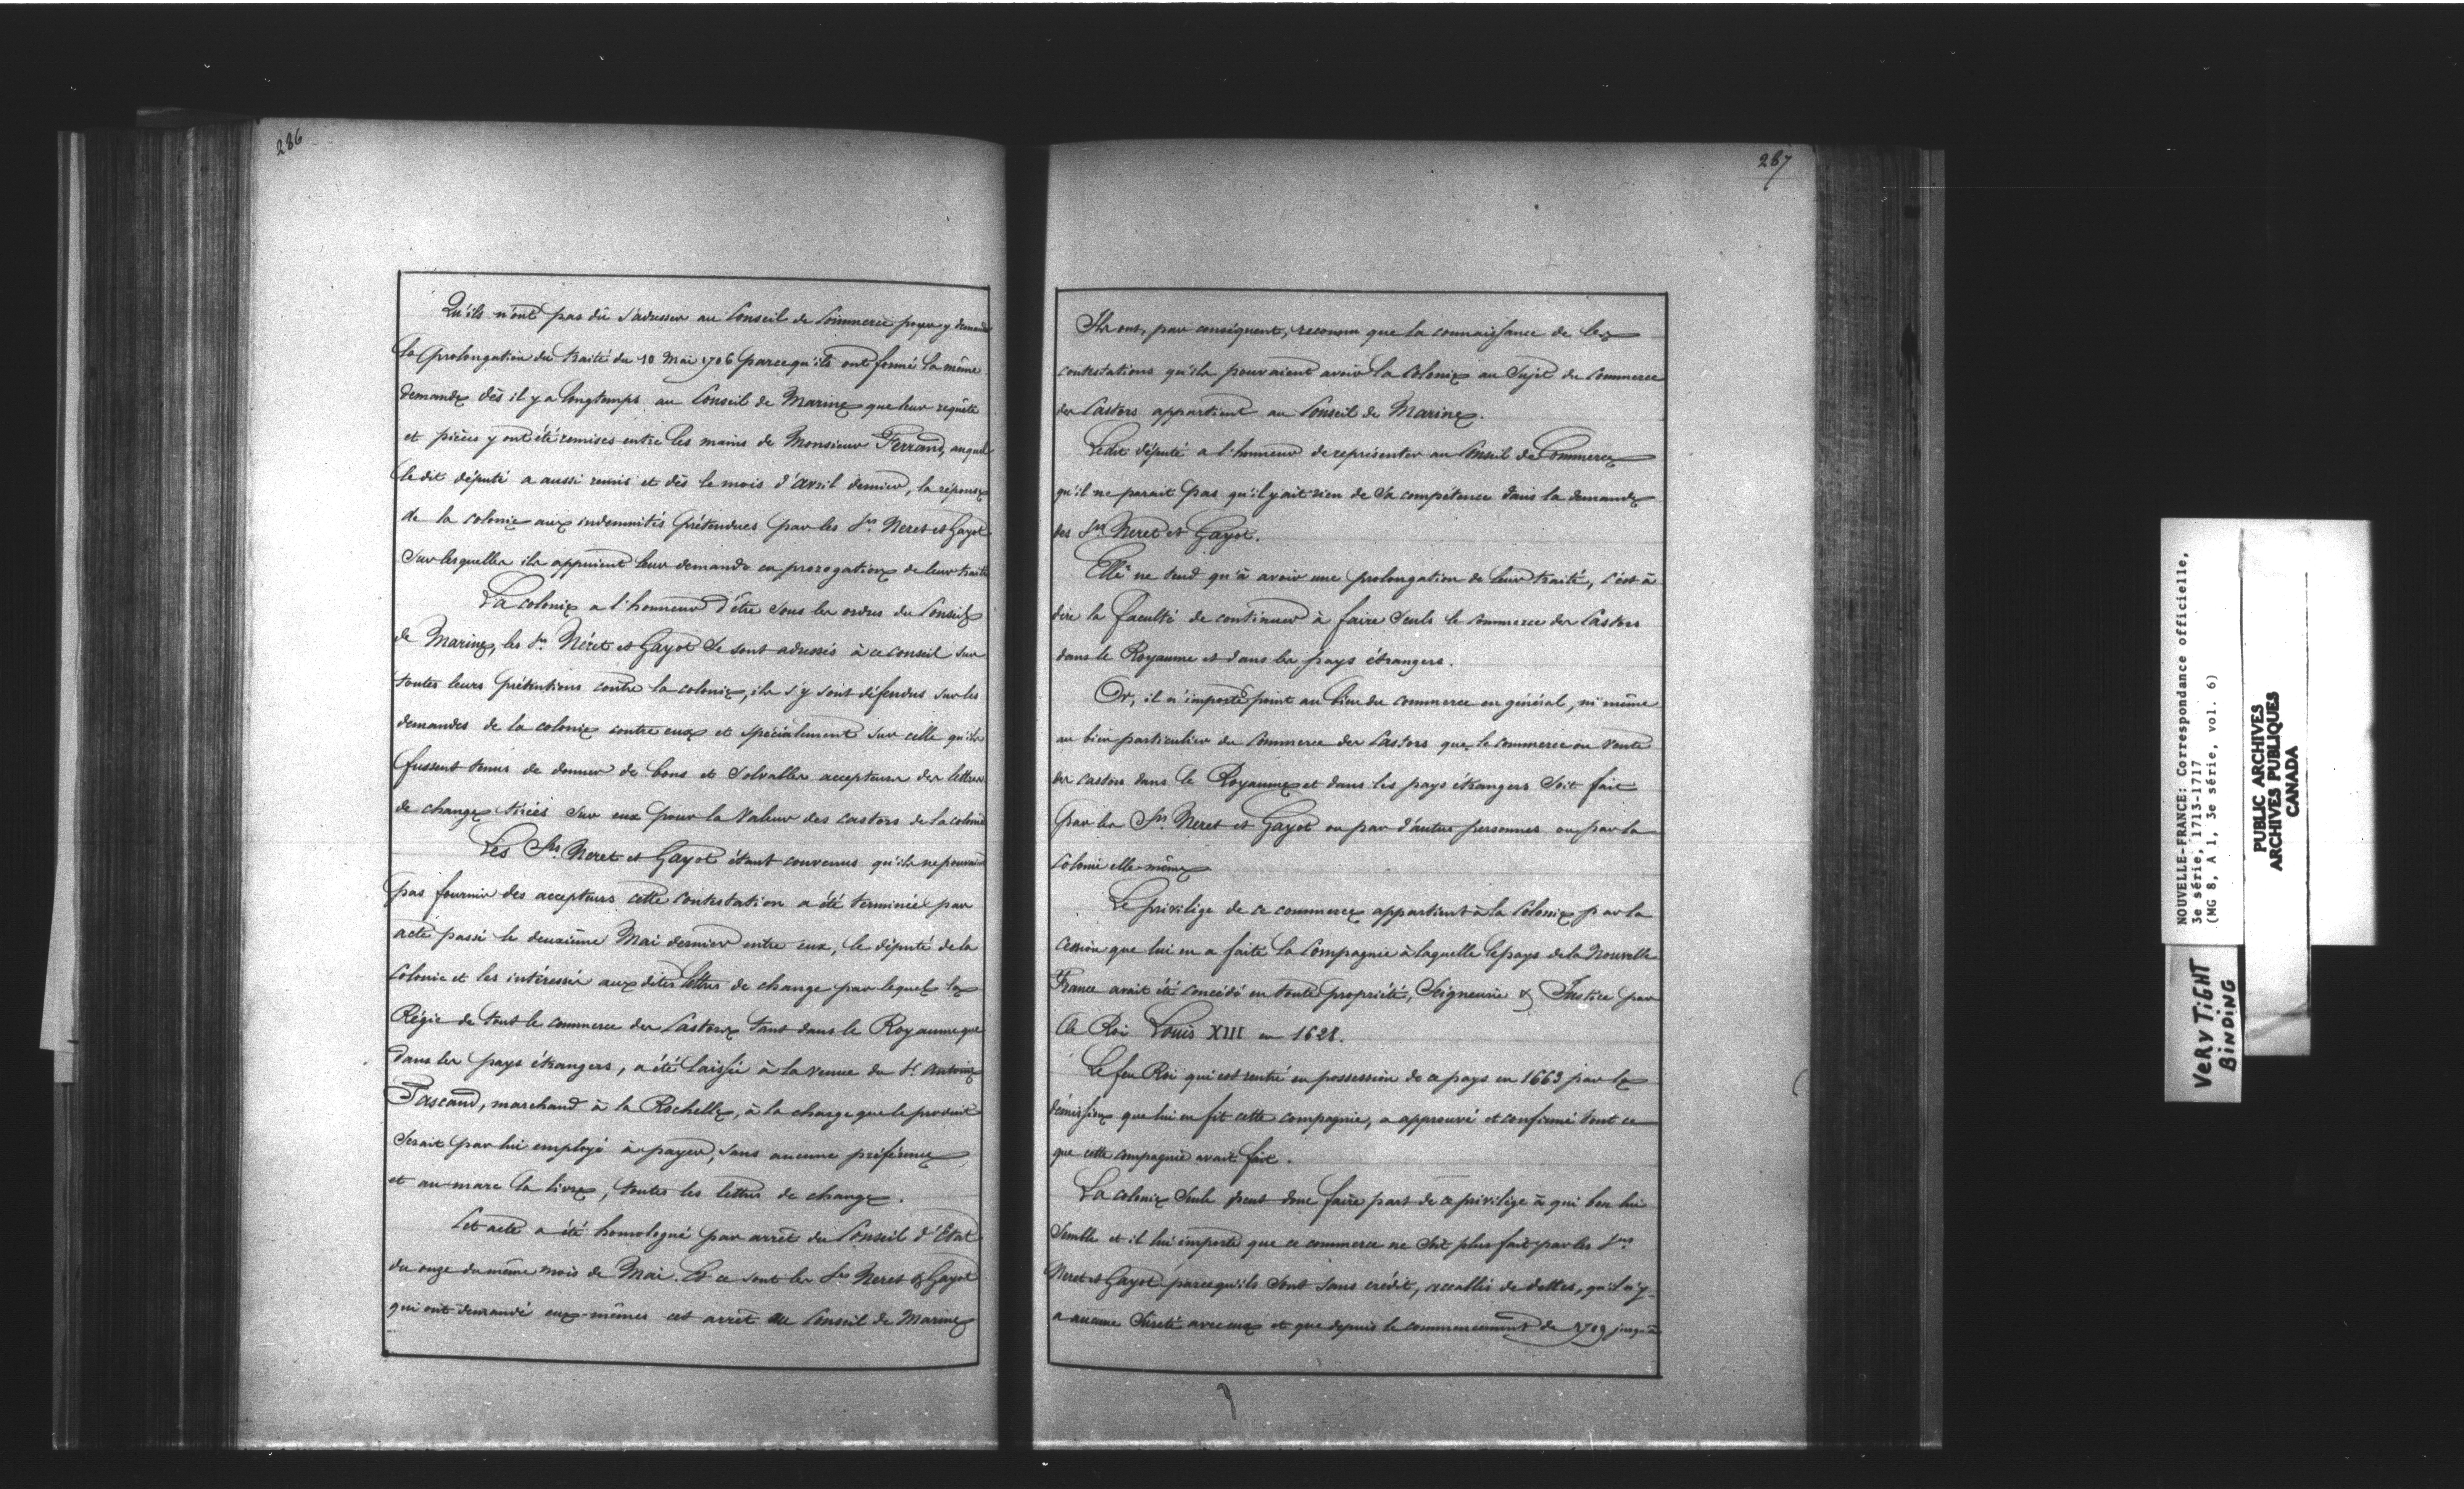 286
Qu'ils n'ont pas dû s'adresser au Conseil de Commerce pour y demander
la prolongation du traité du 10 Mai 1706 parcequ'ils ont formé la même
demande dès il y a longtemps au Conseil de Marine que leur requête
et pièces y ont été remises entre les mains de Monsieur Ferrand, auquel
le dit député a aussi remis et dès le mois d'avril dernier, la réponse
de la colonie aux indemnités prétendues par les Srs Neret et Gayot
Sur lesquelles ils appuient leur demande en prorogation de leur traité
La colonie a l'honneur d'être sous les ordres du Conseil
de Marine, les Srs Néret et Gayot se sont adressés à ce conseil sur
toutes leurs prétentions contre la colonie, ils s'y sont défendus sur les
demandes de la colonie contre eux et spécialement sur celle qu'ils
fussent tenus de donner de bons et solvables accepteurs des lettres
de change tirées sur eux pour la valeur des castors de la colonie
Les Srs Neret et Gayot étant convenus qu'ils ne pouvaient
pas fournir des accepteurs cette contestation a été terminée par
acte passé le deuxième Mai dernier entre eux, le député de la
Colonie et les intéressés aux dites lettres de change par lequel la
Régie de tout le commerce des Castors tant dans le Royaume que
dans les pays étrangers, a été laissée à la venue du Sr Antoine
Pascaud, marchand à la Rochelle, à la charge que le produit
serait par lui employé à payer, sans aucune préférence
et au marc la livre, toutes les lettres de change.
Cet acte a été homologué par arrêt du Conseil d'Etat
du onze du même mois de Mai. Et ce sont les Srs Neret & Gayot
qui ont demandé eux-mêmes cet arrêt au Conseil de Marine
287
Ils ont, par conséquent, reconnu que la connaissance de les
contestations qu'ils pouvaient avoir la Colonie au Sujet du Commerce
des Castors appartient au Conseil de Marine.
Ledit député a l'honneur de représenter au Conseil de Commerce
qu'il ne parait pas qu'il y ait rien de sa compétence dans la demande
des Srs Neret et Gayot.
Elle ne tend qu'à avoir une prolongation de leur traité, c'est à
dire la faculté de continuer à faire seuls le commerce des Castors
dans le Royaume et dans les pays étrangers.
Or, il n'importe point au bien du commerce en général, ni même
au bien particulier du Commerce des Castors que le commerce ou vente
des castors dans le Royaume et dans les pays étrangers soit fait
par les Srs Neret et Gayot ou par d'autres personnes ou par la
Colonie elle-même
Le privilège de ce commerce appartient à la Colonie par la
cession que lui en a faite la Compagnie à laquelle le pays de la Nouvelle
France avait été concédé en toute propriété, Seigneurie & Justice par
le Roi Louis XIII en 1628.
Le feu Roi qui est rentré en possession de ce pays en 1663 par la
démission que lui en fit cette compagnie, a approuvé et confirmé tout ce
que cette compagnie avait fait.
La colonie seule peut donc faire part de ce privilège à qui bon lui
Semble et il lui importe que ce commerce ne soit plus fait par les Srs
Neret et Gayot parcequ'ils sont sans crédit, accablés de dettes, qu'il n'y
a aucune Sûreté avec eux et que depuis le commencement de 1709 jusqu'à
NOUVELLE-FRANCE: Correspondance officielle,
3e série, 1713-1717
(MG 8, A 1, 3e série, vol. 6)
PUBLIC ARCHIVES
ARCHIVES PUBLIQUES
CANADA
VERY TIGHT
BINDING